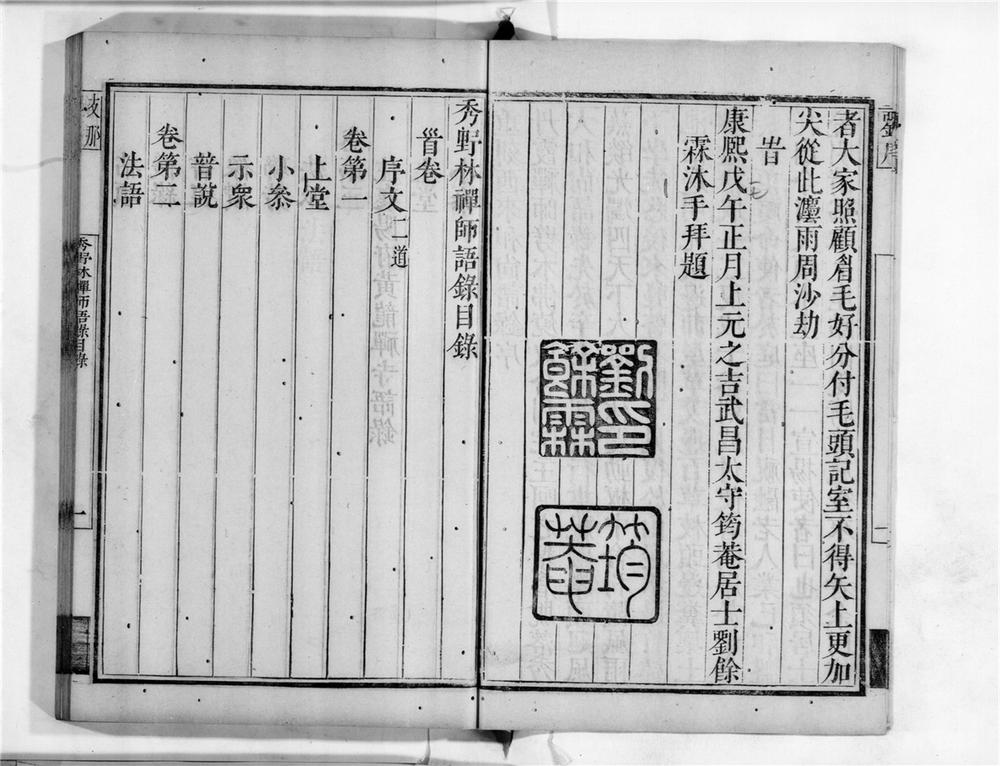 劉序
者大家照顧眉毛好分付毛頭記室不得矢上更加
尖從此灋雨周沙劫
旹
康熈戊午正月上元之吉武昌太守筠菴居士劉餘
霖沐手拜題
劉餘霖印
筠菴
二
秀野林禪師語錄目錄
首卷
序文二道
卷第一
上堂
小參
示衆
普說
卷第二
法語
支那
秀野林禪師語錄目錄
一